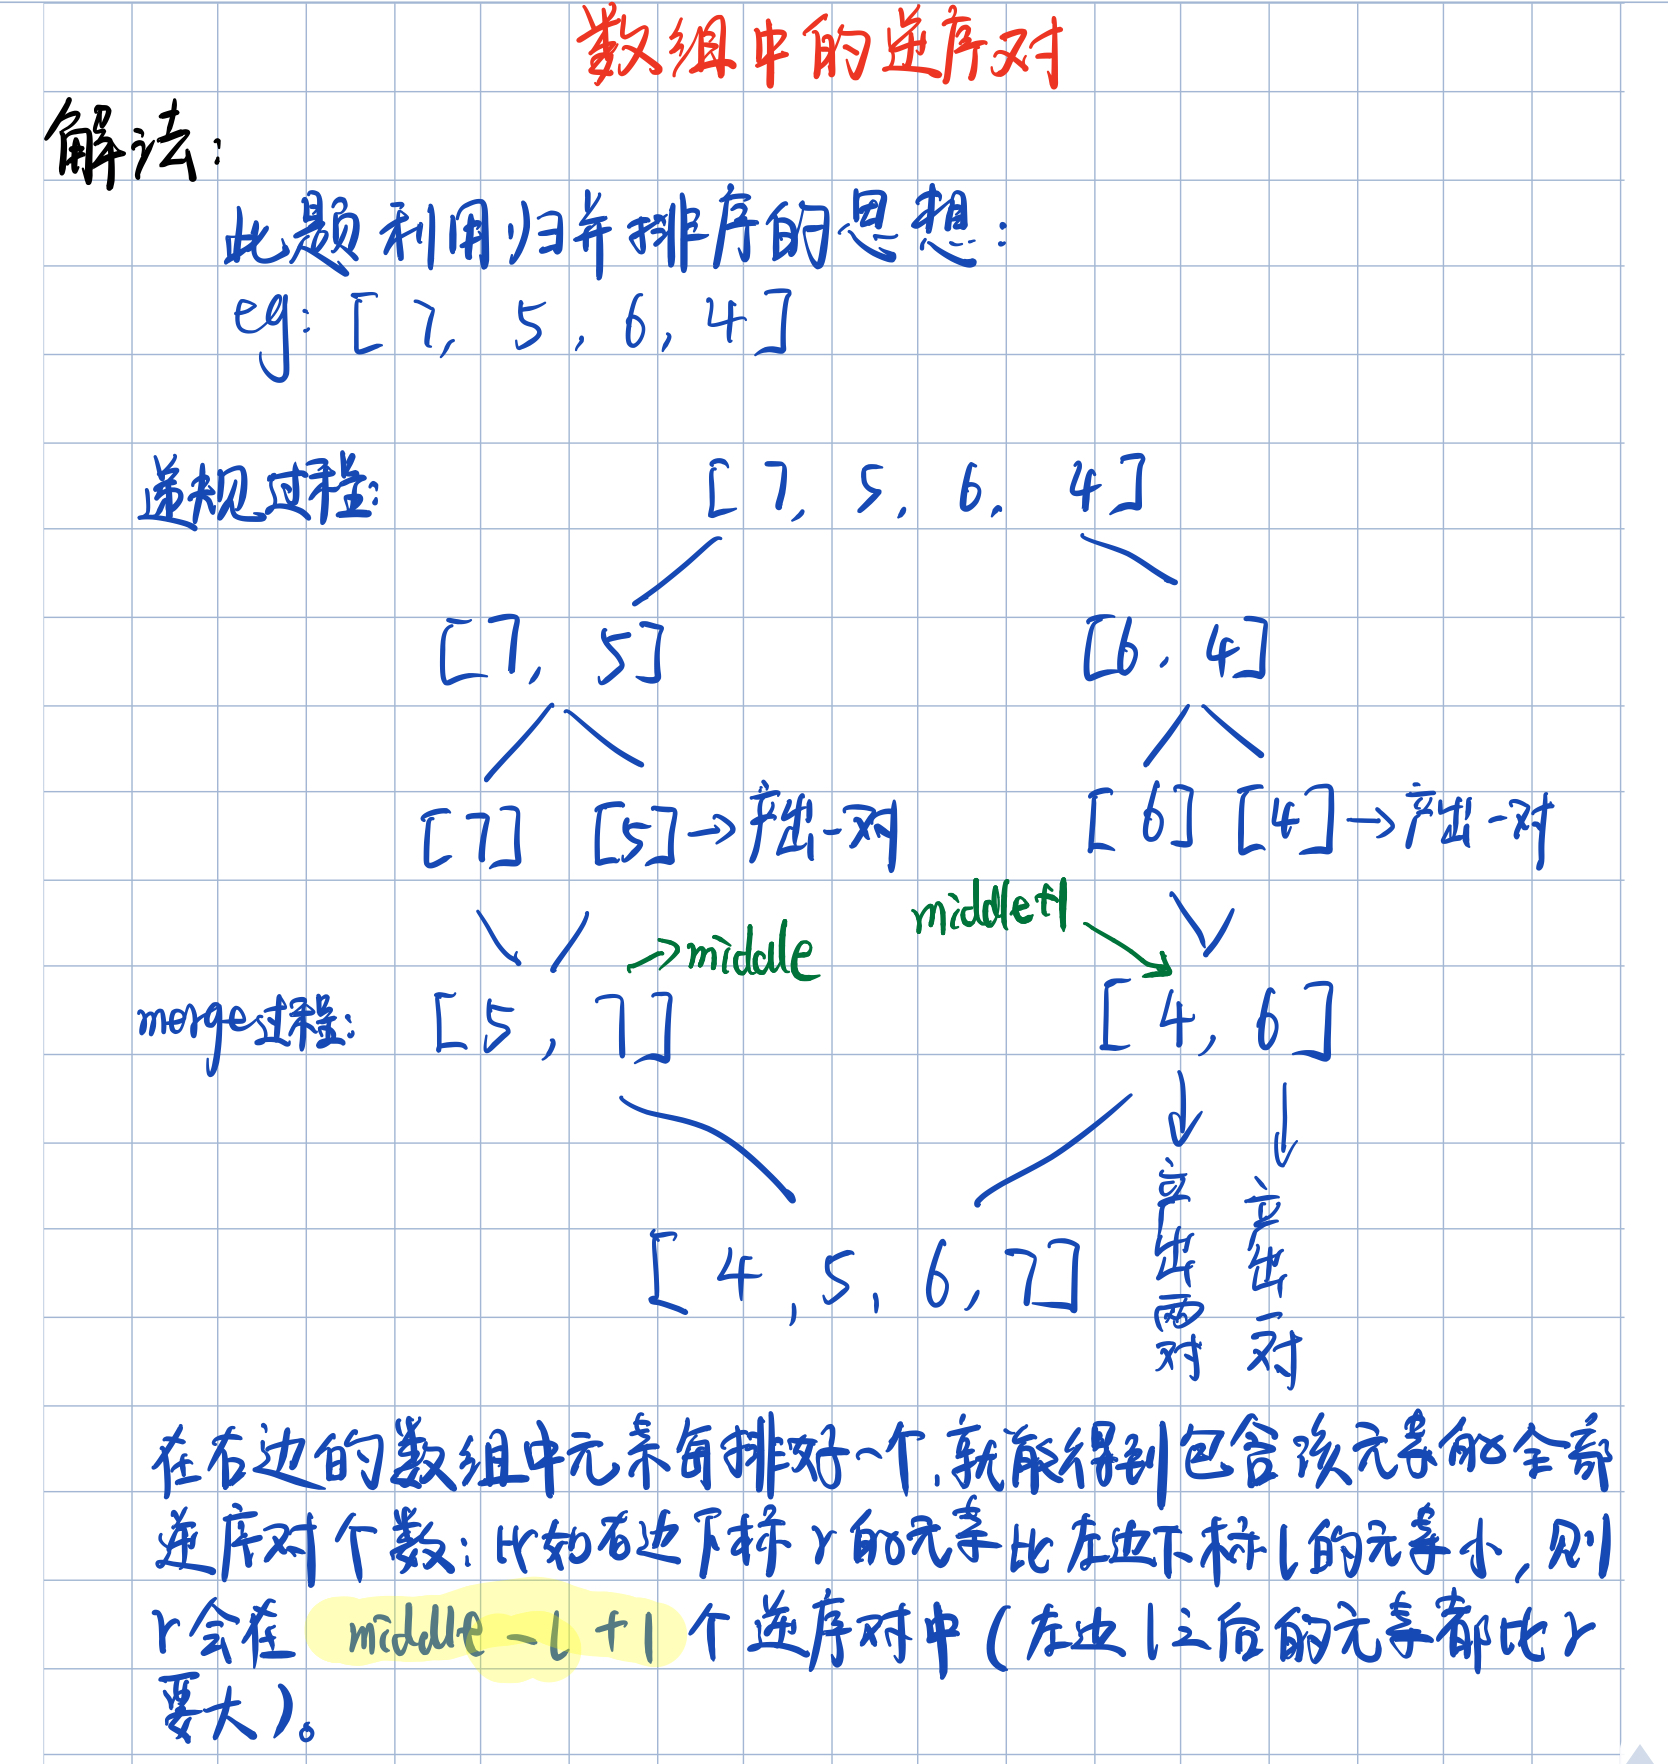 数组中的逆序对
解法:
此题利用归并排序的思想:
eg: [7, 5, 6, 4]
递规过程: [7, 5, 6, 4]
[7, 5] [6, 4]
[7] [5]→产出一对 [6] [4]→产出一对
→middle middle+1
merge过程: [5, 7] [4, 6]
产出两对 产出一对
[4, 5, 6, 7]
在右边的数组中元素每排好一个,就能得到包含该元素的全部
逆序对个数:比如右边下标r的元素比左边下标l的元素小,则
r会在 middle-l+1 个逆序对中(左边l之后的元素都比r
要大)。